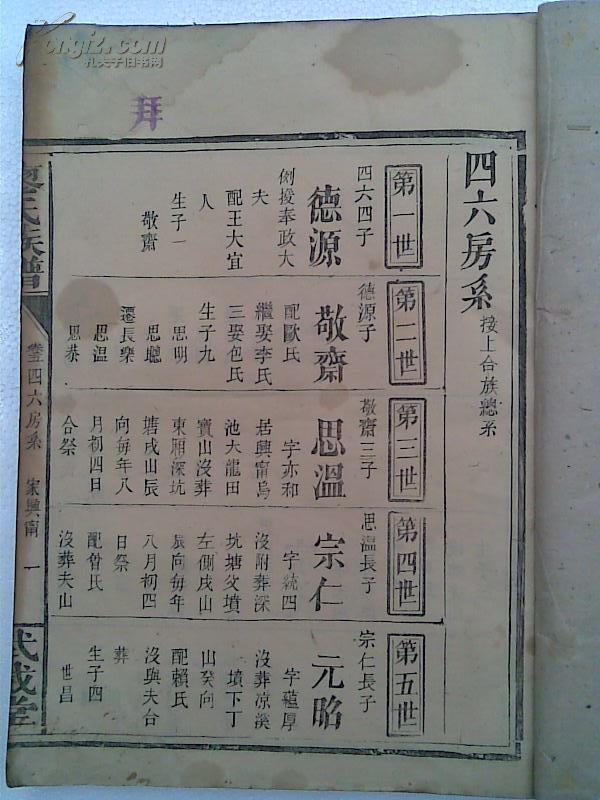 Kongfz.com
孔夫子旧书网
拜
四六房系
接上合族總系
第一世
四六四子
德源
例授奉政大
夫
配王大宜
人
生子一
敬齋
第二世
德源子
敬齋
配歐氏
繼娶李氏
三娶包氏
生子九
思明
思聰
遷長樂
思温
思恭
第三世
敬齋三子
思溫
字亦和
居興甯烏
池大龍田
寳山沒葬
東廂深坑
塘戌山辰
向每年八
月初四日
合祭
第四世
思温長子
宗仁
字統四
沒附葬深
坑塘父墳
左側戌山
辰向每年
八月初四
日祭
配曾氏
沒葬夫山
第五世
宗仁長子
元昭
字蘊厚
沒葬凉溪
墳下丁
山癸向
配賴氏
沒與夫合
葬
生子四
世昌
廖氏族譜
四六房系
家興甯
一
武威堂